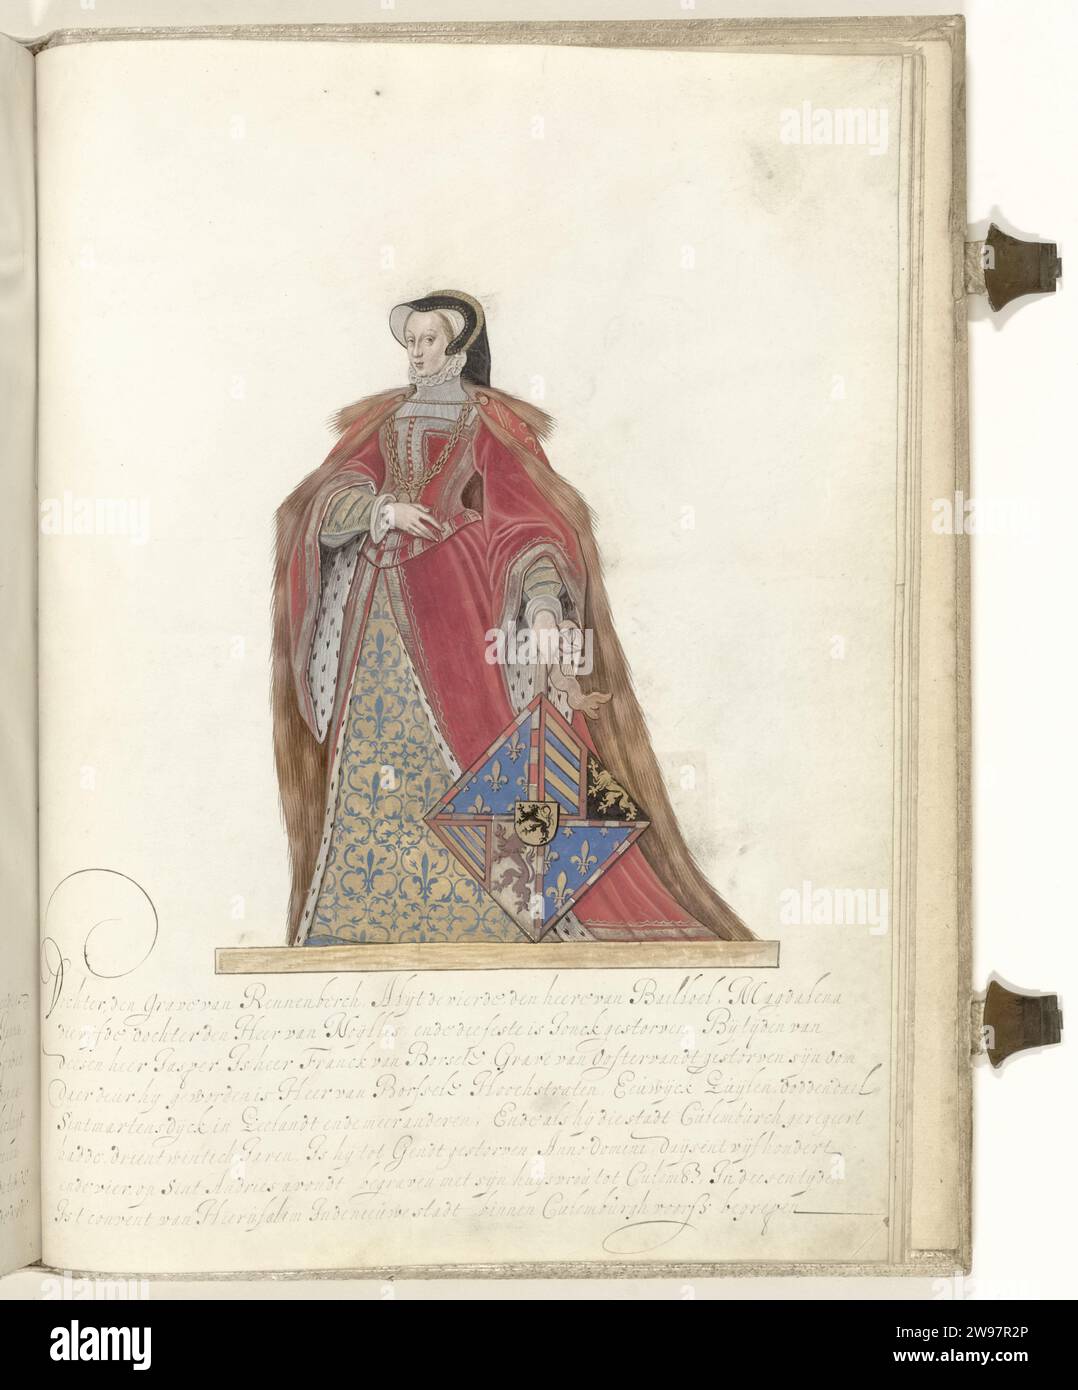 dochter, den Grave van Rennenberch, Alyt de vierde, den heere van Bailloel, Magdalena
die vijfde dochter den Heer van Noÿlles, ende die seste is Jonck gestorven. Bij tijden van
deesen heer Jasper, Is heer Franck van Borsele Grave van Oostervandt gestorven sijn oom
Daer deur hij geworden is Heer van Borssele Hoochstraten, Zuÿlen,
Sintmartensdÿck, in Zeelandt ende meer anderen, Ende als hij die stadt Culemburch geregeert
hadde, drientwintich Jaren, Is hij tot Gendt gestorven, Anno domini, Duÿsent vijfhondert
ende vier, op Sint Andries avondt begraven met sijn huÿsvrou tot Culemb. In deesen tijde
Ist convent van Hierusalem In de nieuwe stadt binnen Culemburgh voorss begrepen
alamy
alamy
alamy
alamy
alamy
alamy
alamy
Image ID: 2W97R2P
www.alamy.com